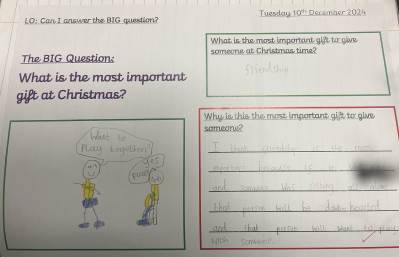 Tuesday 10th December 2024
LO: Can I answer the BIG question?
The BIG Question:
What is the most important
gift at Christmas?
What is the most important gift to give
someone at Christmas time?
friendship
Want to
Play together?
yes
please
Why is this the most important gift to give
someone?
I think friendship is the most
important because if
and someone was sitting all alone
that person will be down hearted
and that person will want to play
with someone.